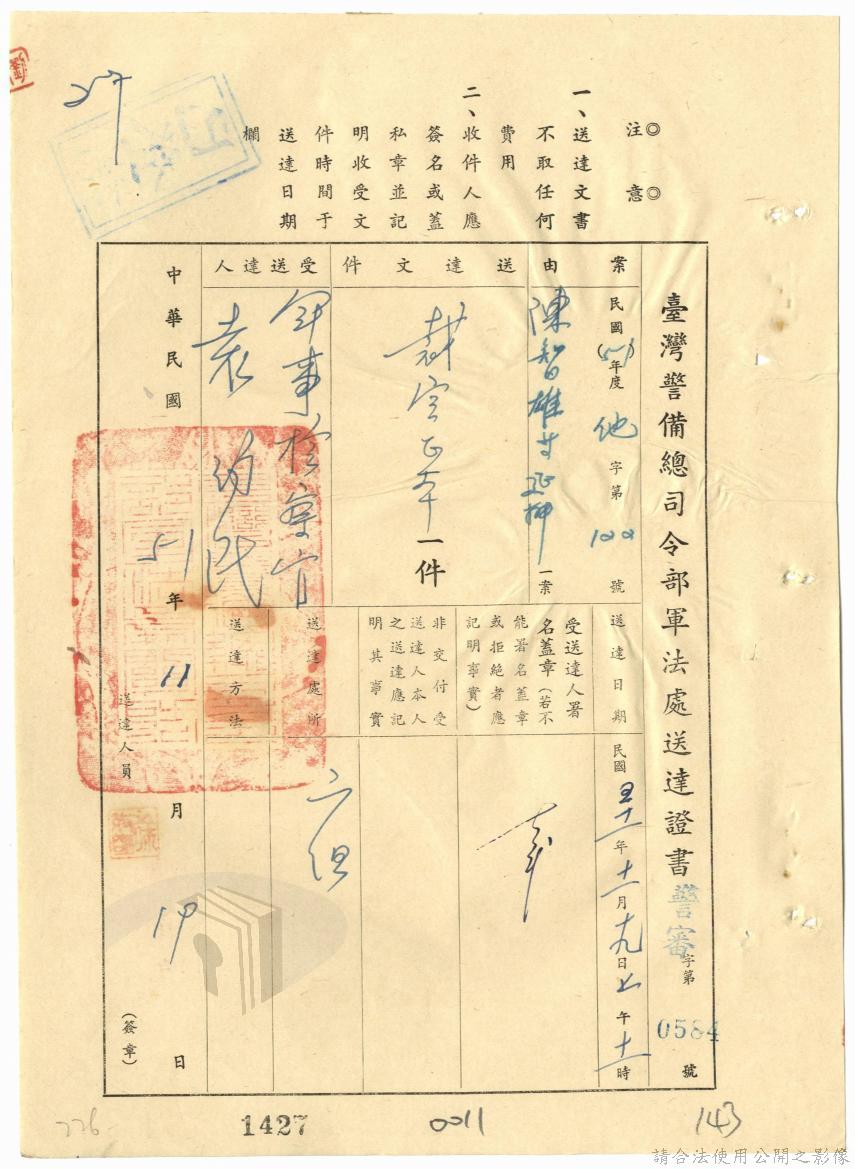 ◎注意◎
一、送達文書
不取任何
費用
二、收件人應
簽名或蓋
私章並記
明收受文
件時間于
送達日期
欄
臺灣警備總司令部軍法處送達證書警審字第0584號
案由
民國(51)年度他字第100號
陳智雄等延押一案
送達文件
裁定正本一件
受送達人
軍事檢察官
袁
民
送達日期
民國五十一年十一月十九日上午十一時
受送達人署
名蓋章(若不
能署名蓋章
或拒絕者應
記明事實)
非交付受
送達人本人
之送達應記
明其事實
送達處所
六組
送達方法
中華民國51年11月19日
送達人員
(簽章)
1427
0011
143
請合法使用公開之影像